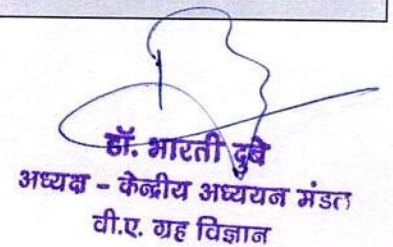 डॉ. भारती दुबे
अध्यक्ष - केन्द्रीय अध्ययन मंडल
वी.ए. ग्रह विज्ञान